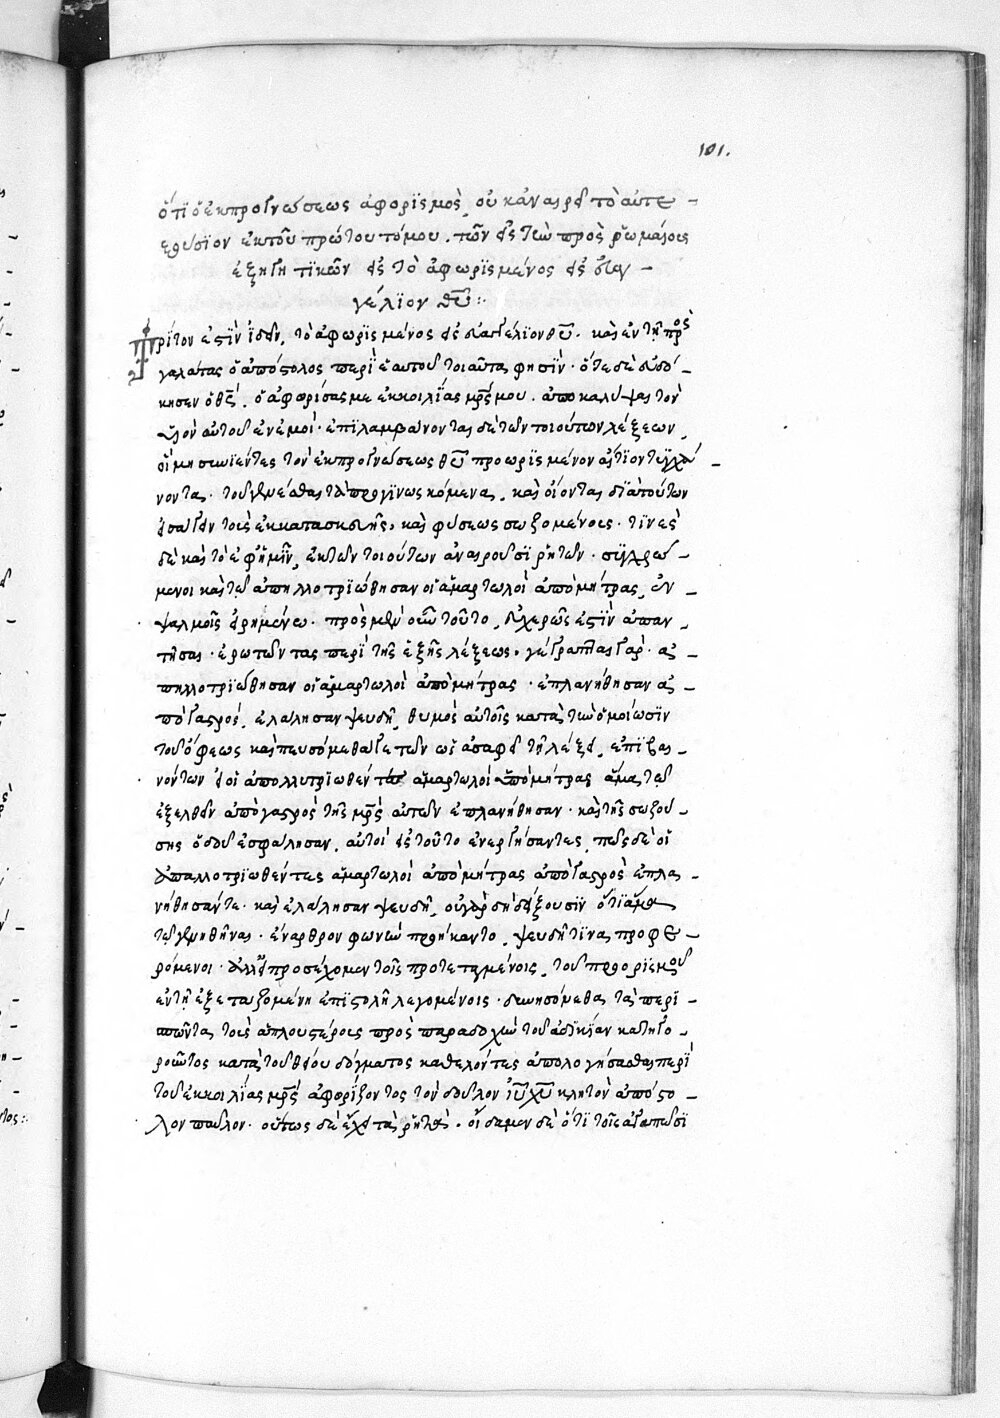 101.
ὅτι ὁ ἐκ προγνώσεως ἀφορισμὸς, οὐκ ἀναιρεῖ τὸ αὐτε-
ξούσιον ἐκ τοῦ πρώτου τόμου. τῶν εἰς τὴν πρὸς ῥωμαίους
ἐξηγητικῶν εἰς τὸ ἀφωρισμένος εἰς εὐαγ-
γέλιον θῦ:
Τρίτον ἐστὶν ἰδεῖν, τὸ ἀφωρισμένος εἰς εὐαγγέλιον θῦ. καὶ ἐν τῇ πρὸς
γαλάτας ὁ ἀπόστολος περὶ ἑαυτοῦ τοιαῦτα φησὶν· ὅτε δὲ εὐδό-
κησεν ὁ θς, ὁ ἀφορίσας με ἐκ κοιλίας μρς μου. ἀποκαλύψαι τὸν
υἱὸν αὐτοῦ ἐν ἐμοί· ἐπιλαμβάνονται δὲ τῶν τοιούτων λέξεων,
οἱ μὴ συνιέντες τὸν ἐκ προγνώσεως θῦ προωρισμένον αἴτιον τυγχά-
νοντα· τοῦ γενέσθαι τὰ προγινωσκόμενα, καὶ οἴονται διὰ τούτων
εἰσάγειν τοὺς ἐκ κατασκευῆς, καὶ φύσεως σωζομένους· τινὲς
δὲ καὶ τὸ ἐφ' ἡμῖν, ἐκ τῶν τοιούτων ἀναιροῦσι ῥητῶν· συγχρώ-
μενοι καὶ τῷ ἀπηλλοτριώθησαν οἱ ἁμαρτωλοὶ ἀπὸ μήτρας, ἐν
ψαλμοῖς εἰρημένῳ. πρὸς μὲν οὖν τοῦτο, εὐχερῶς ἐστὶν ἀπαν-
τῆσαι· ἐρωτῶντας περὶ τῆς ἑξῆς λέξεως, γέγραπται γάρ· ἀ-
πηλλοτριώθησαν οἱ ἁμαρτωλοὶ ἀπὸ μήτρας· ἐπλανήθησαν ἀ-
πὸ γαστρὸς, ἐλάλησαν ψευδῆ, θυμὸς αὐτοῖς κατὰ τὴν ὁμοίωσιν
τοῦ ὄφεως καὶ πευσόμεθά γε τῶν ὡς ἀσαφεῖ τῇ λέξει, ἐπιβαι-
νόντων εἰ οἱ ἀπολλυτριωθέντες ἁμαρτωλοὶ ἀπὸ μήτρας ἅμα τῷ
ἐξελθεῖν ἀπὸ γαστρὸς τῆς μρς αὐτῶν ἐπλανήθησαν· καὶ τῆς σωζού-
σης ὁδοῦ ἐσφάλησαν, αὐτοὶ εἰς τοῦτο ἐνεργήσαντες, πῶς δὲ οἱ
ἀπαλλοτριωθέντες ἁμαρτωλοὶ ἀπὸ μήτρας ἀπὸ γαστρὸς ἐπλα-
νήθησάν τε· καὶ ἐλάλησαν ψευδῆ, οὐ γὰρ δὴ δείξουσιν ὅτι ἅμα
τῷ γεννηθῆναι· ἔναρθρον φωνὴν προήκαντο, ψευδῆ τινα προφε-
ρόμενοι· ἀλλ' εἰ προσέχομεν τοῖς προτεταγμένοις, τοῦ προορισμοῦ
ἐν τῇ ἐξεταζομένῃ ἐπιστολῇ λεγομένοις· δυνησόμεθα τὰ περι-
σπῶντα τοὺς ἁπλουστέρους πρὸς παραδοχὴν τοῦ ἀδικίαν κατηγο-
ροῦντος κατὰ τοῦ θείου δόγματος καθελόντες ἀπολογήσασθαι περὶ
τοῦ ἐκ κοιλίας μρς ἀφορίζοντος τὸν δοῦλον ἰῦ χῦ κλητὸν ἀπόστο-
λον παῦλον· οὕτως δὲ ἔχει τὰ ῥητά. οἴδαμεν δὲ ὅτι τοῖς ἀγαπῶσι